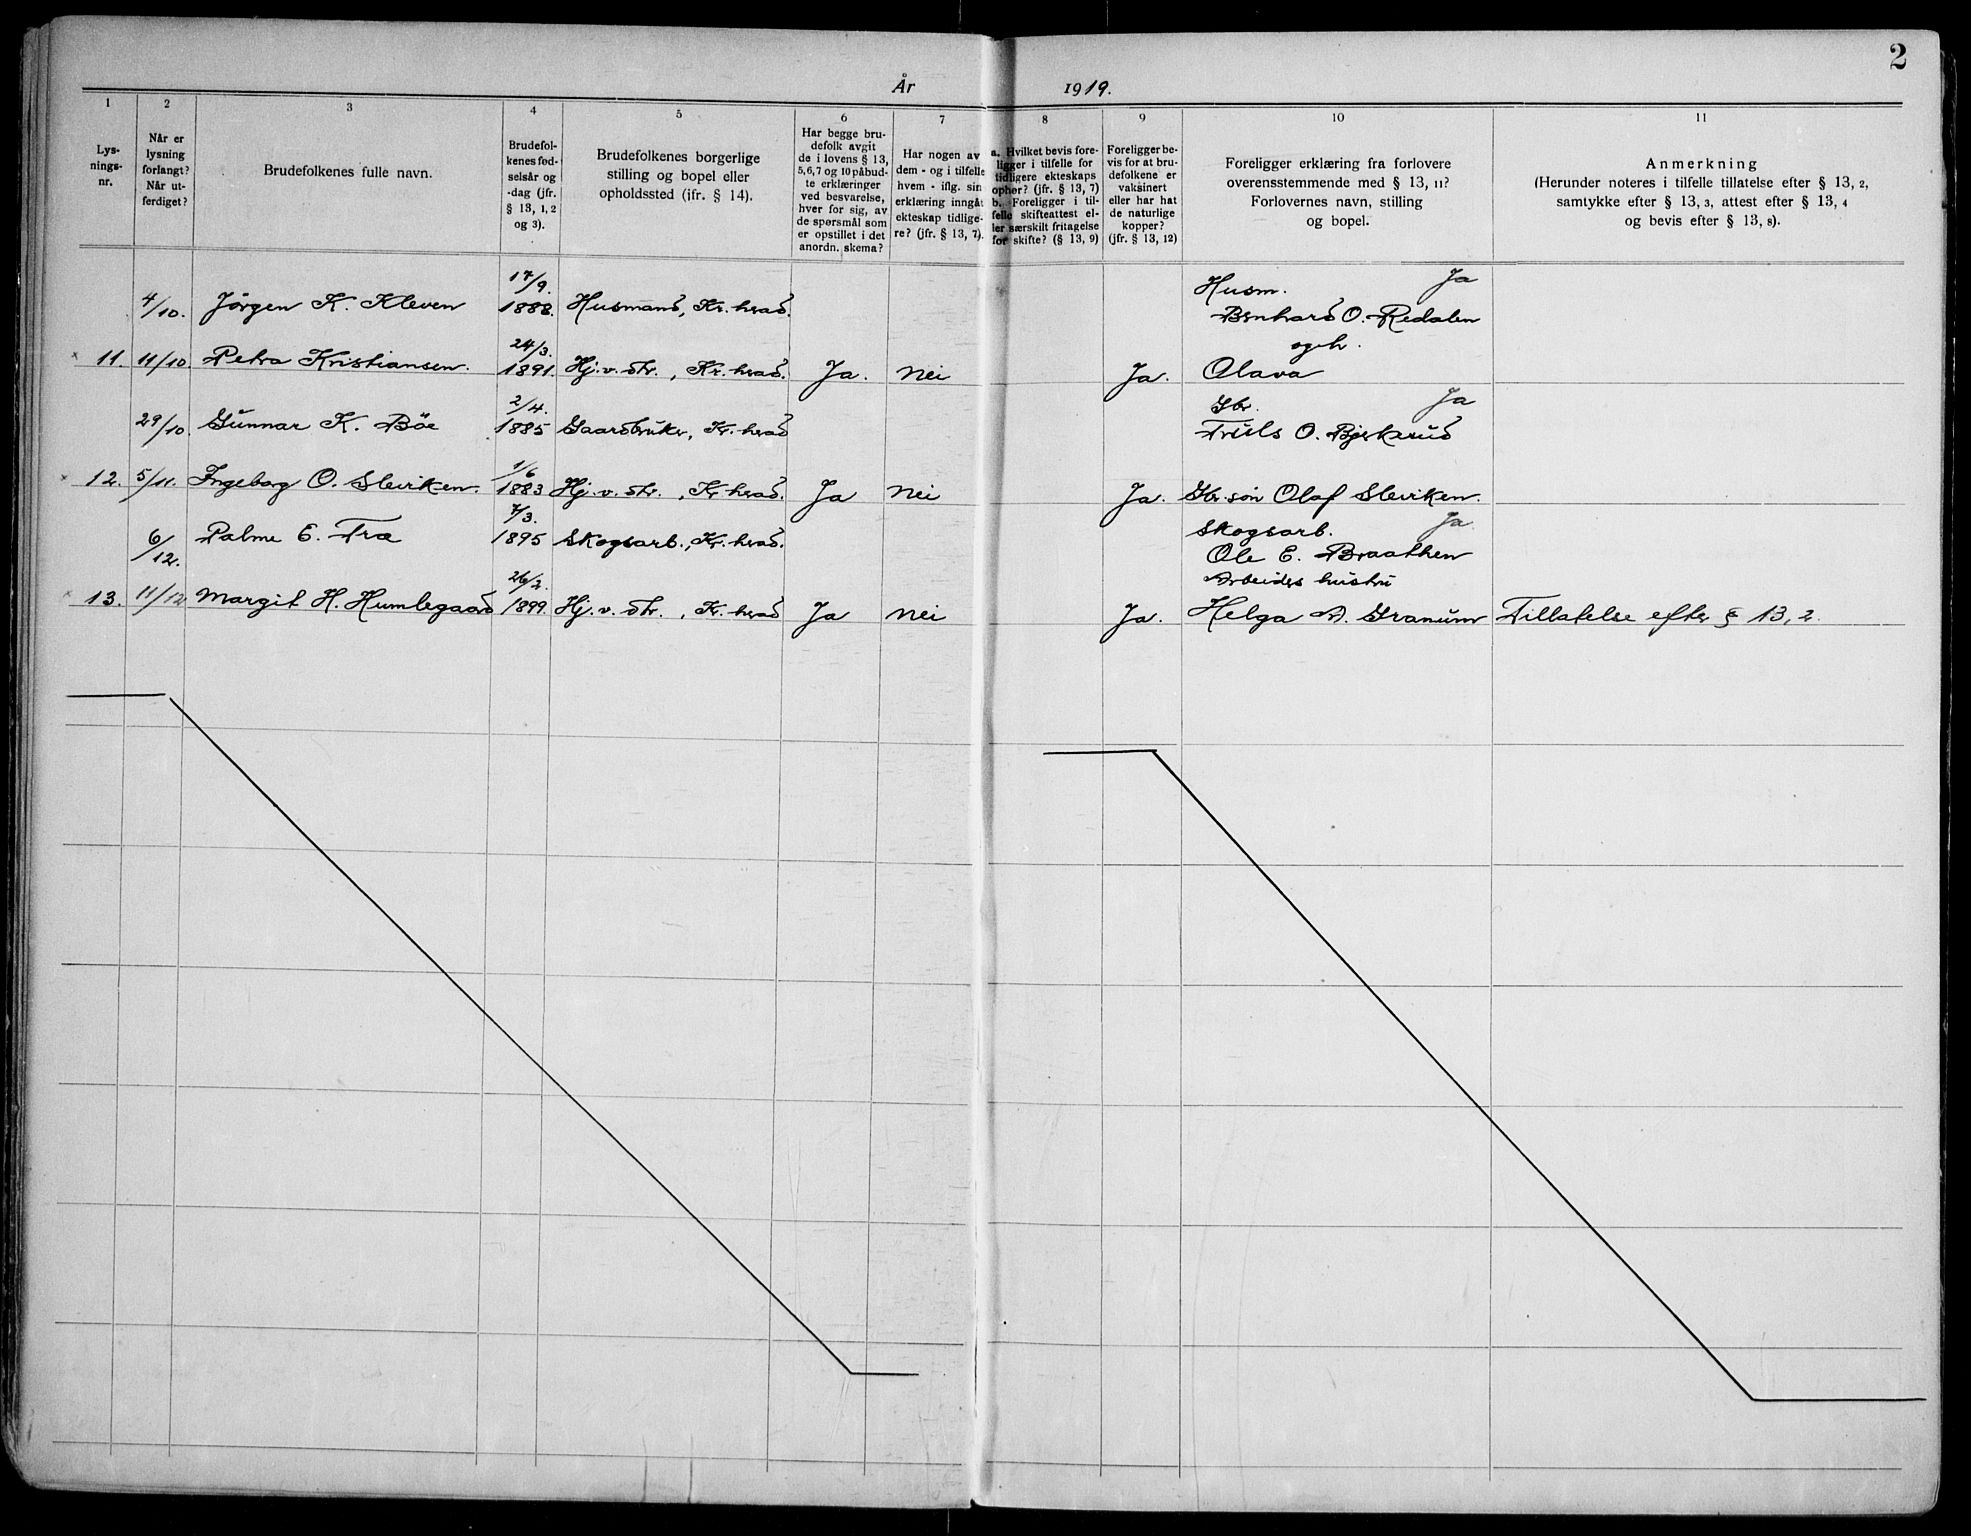 2
År 1919.
1 2 3 4 5 6 7 8 9 10 11
Lys-
nings-
nr.
Når er
lysning
forlangt?
Når ut-
ferdiget?
Brudefolkenes fulle navn.
Brudefol-
kenes fød-
selsår og
-dag (jfr.
§ 13, 1, 2
og 3).
Brudefolkenes borgerlige
stilling og bopel eller
opholdssted (jfr. § 14).
Har begge bru-
defolk avgit
de i lovens § 13,
5, 6, 7 og 10 påbud-
te erklæringer
ved besvarelse,
hver for sig, av
de spørsmål som
er opstillet i det
anordn. skema?
Har nogen av
dem - og i tilfelle
hvem - iflg. sin
erklæring inngåt
ekteskap tidlige-
re? (jfr. § 13, 7).
a. Hvilket bevis fore-
ligger i tilfelle for
tidligere ekteskaps
ophør? (jfr. § 13, 7)
b. Foreligger i til-
felle skifteattest el-
ler særskilt fritagelse
for skifte? (§ 13, 9)
Foreligger be-
vis for at bru-
defolkene er
vaksinert
eller har hat
de naturlige
kopper?
(jfr. § 13, 12)
Foreligger erklæring fra forlovere
overensstemmende med § 13, 11?
Forlovernes navn, stilling
og bopel.
Anmerkning
(Herunder noteres i tilfelle tillatelse efter § 13, 2,
samtykke efter § 13, 3, attest efter § 13, 4
og bevis efter § 13, 8).
17/9. Husm. Ja
4/10. Jørgen K. Kleven 1888. Husmand, Kr. hrad. Bernhard O. Redalen
24/3. og h.
× 11. 11/10. Petra Kristiansen. 1891. Hj. v. str., Kr. hrad. Ja. Nei Ja. Olava
2/4. Gbr. Ja
29/10. Gunnar K. Böe 1885 Gaardbruker, Kr. hrad Truls O. Bjerkerud
1/6
× 12. 5/11. Ingeborg O. Sleviken. 1883 Hj. v. str., Kr. hrad. Ja Nei Ja. Gbr. søn Olaf Sleviken.
7/3. Skogsarb. Ja
6/12. Palme E. Træ 1895 Skogsarb., Kr. hrad. Ole E. Braathen
26/2. Arbeiders hustru
× 13. 11/12 Margit H. Humlegaard 1899. Hj. v. str., Kr. hrad Ja Nei Ja. Helga A. Granum Tillatelse efter § 13, 2.